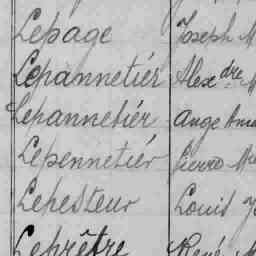 Lepage Joseph M
Lepannetiér Alexdre M
Lepannetiér Ange Ama
Lepennetiér Pierre Me
Lepesteur Louis J
Leprêtre René M